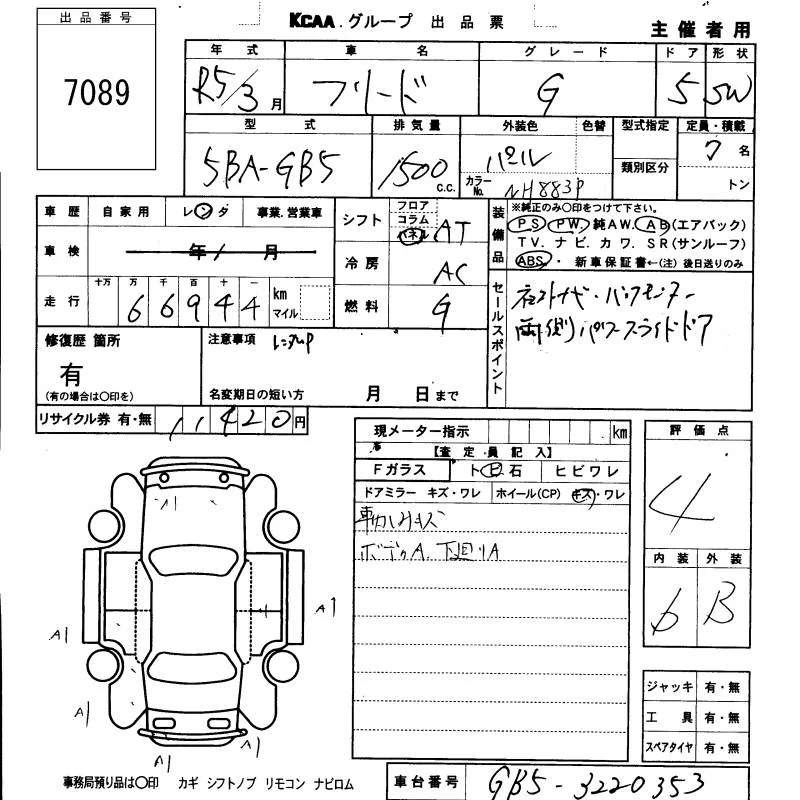 出品番号
7089
KCAA.グループ 出品票
主催者用
年式 車名 グレード ドア 形状
R5/3月 フリード G 5 5W
型式 排気量 外装色 色替 型式指定 定員・積載
5BA-GB5 1500 c.c. パール 7名
カラーNo. NH883P 類別区分 トン
車歴 自家用 レンタ 事業.営業車
シフト フロア コラム パネル AT
装備品 ※純正のみ〇印をつけて下さい。
PS PW. 純AW. AB(エアバック)
TV. ナビ. カワ. SR(サンルーフ)
ABS. ・ 新車保証書←(注) 後日送りのみ
車検 年 月
冷房 AC
走行 十万 万 千 百 十 一
66944 km マイル
燃料 G
セールスポイント
両側パワースライドドア
修復歴 箇所
有
(有の場合は〇印を)
注意事項 レンタUP
名変期日の短い方 月 日まで
リサイクル券 有・無 11420円
現メーター指示 km
【査定員記入】
Fガラス トビ石 ヒビワレ
ドアミラー キズ・ワレ ホイール(CP) キズ・ワレ
ボデーA. 下廻りA
評価点
4
内装 外装
6 B
A1
A1
A1
A1
A1
A1
ジャッキ 有・無
工具 有・無
スペアタイヤ 有・無
事務局預り品は〇印 カギ シフトノブ リモコン ナビロム
車台番号 GB5-3220353